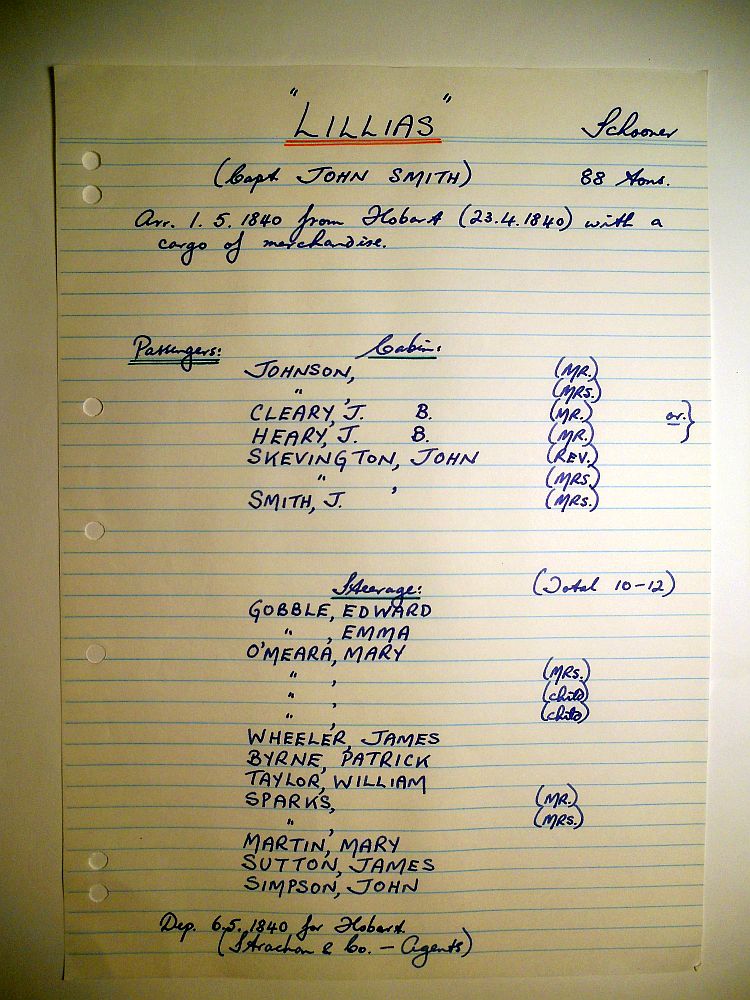 "LILLIAS" Schooner
(Capt. JOHN SMITH) 88 Tons.
Arr. 1.5.1840 from Hobart (23.4.1840) with a
cargo of merchandise.
Passengers: Cabin:
JOHNSON, (MR.)
" , (MRS.)
CLEARY, J. B. (MR.) or. }
HEARY, J. B. (MR.)
SKEVINGTON, JOHN (REV.)
" , (MRS.)
SMITH, J. (MRS.)
Steerage: (Total 10-12)
GOBBLE, EDWARD
" , EMMA
O'MEARA, MARY
" , (MRS.)
" , (child)
" , (child)
WHEELER, JAMES
BYRNE, PATRICK
TAYLOR, WILLIAM
SPARKS, (MR.)
" , (MRS.)
MARTIN, MARY
SUTTON, JAMES
SIMPSON, JOHN
Dep. 6.5.1840 for Hobart.
(Strachan & Co. - Agents)